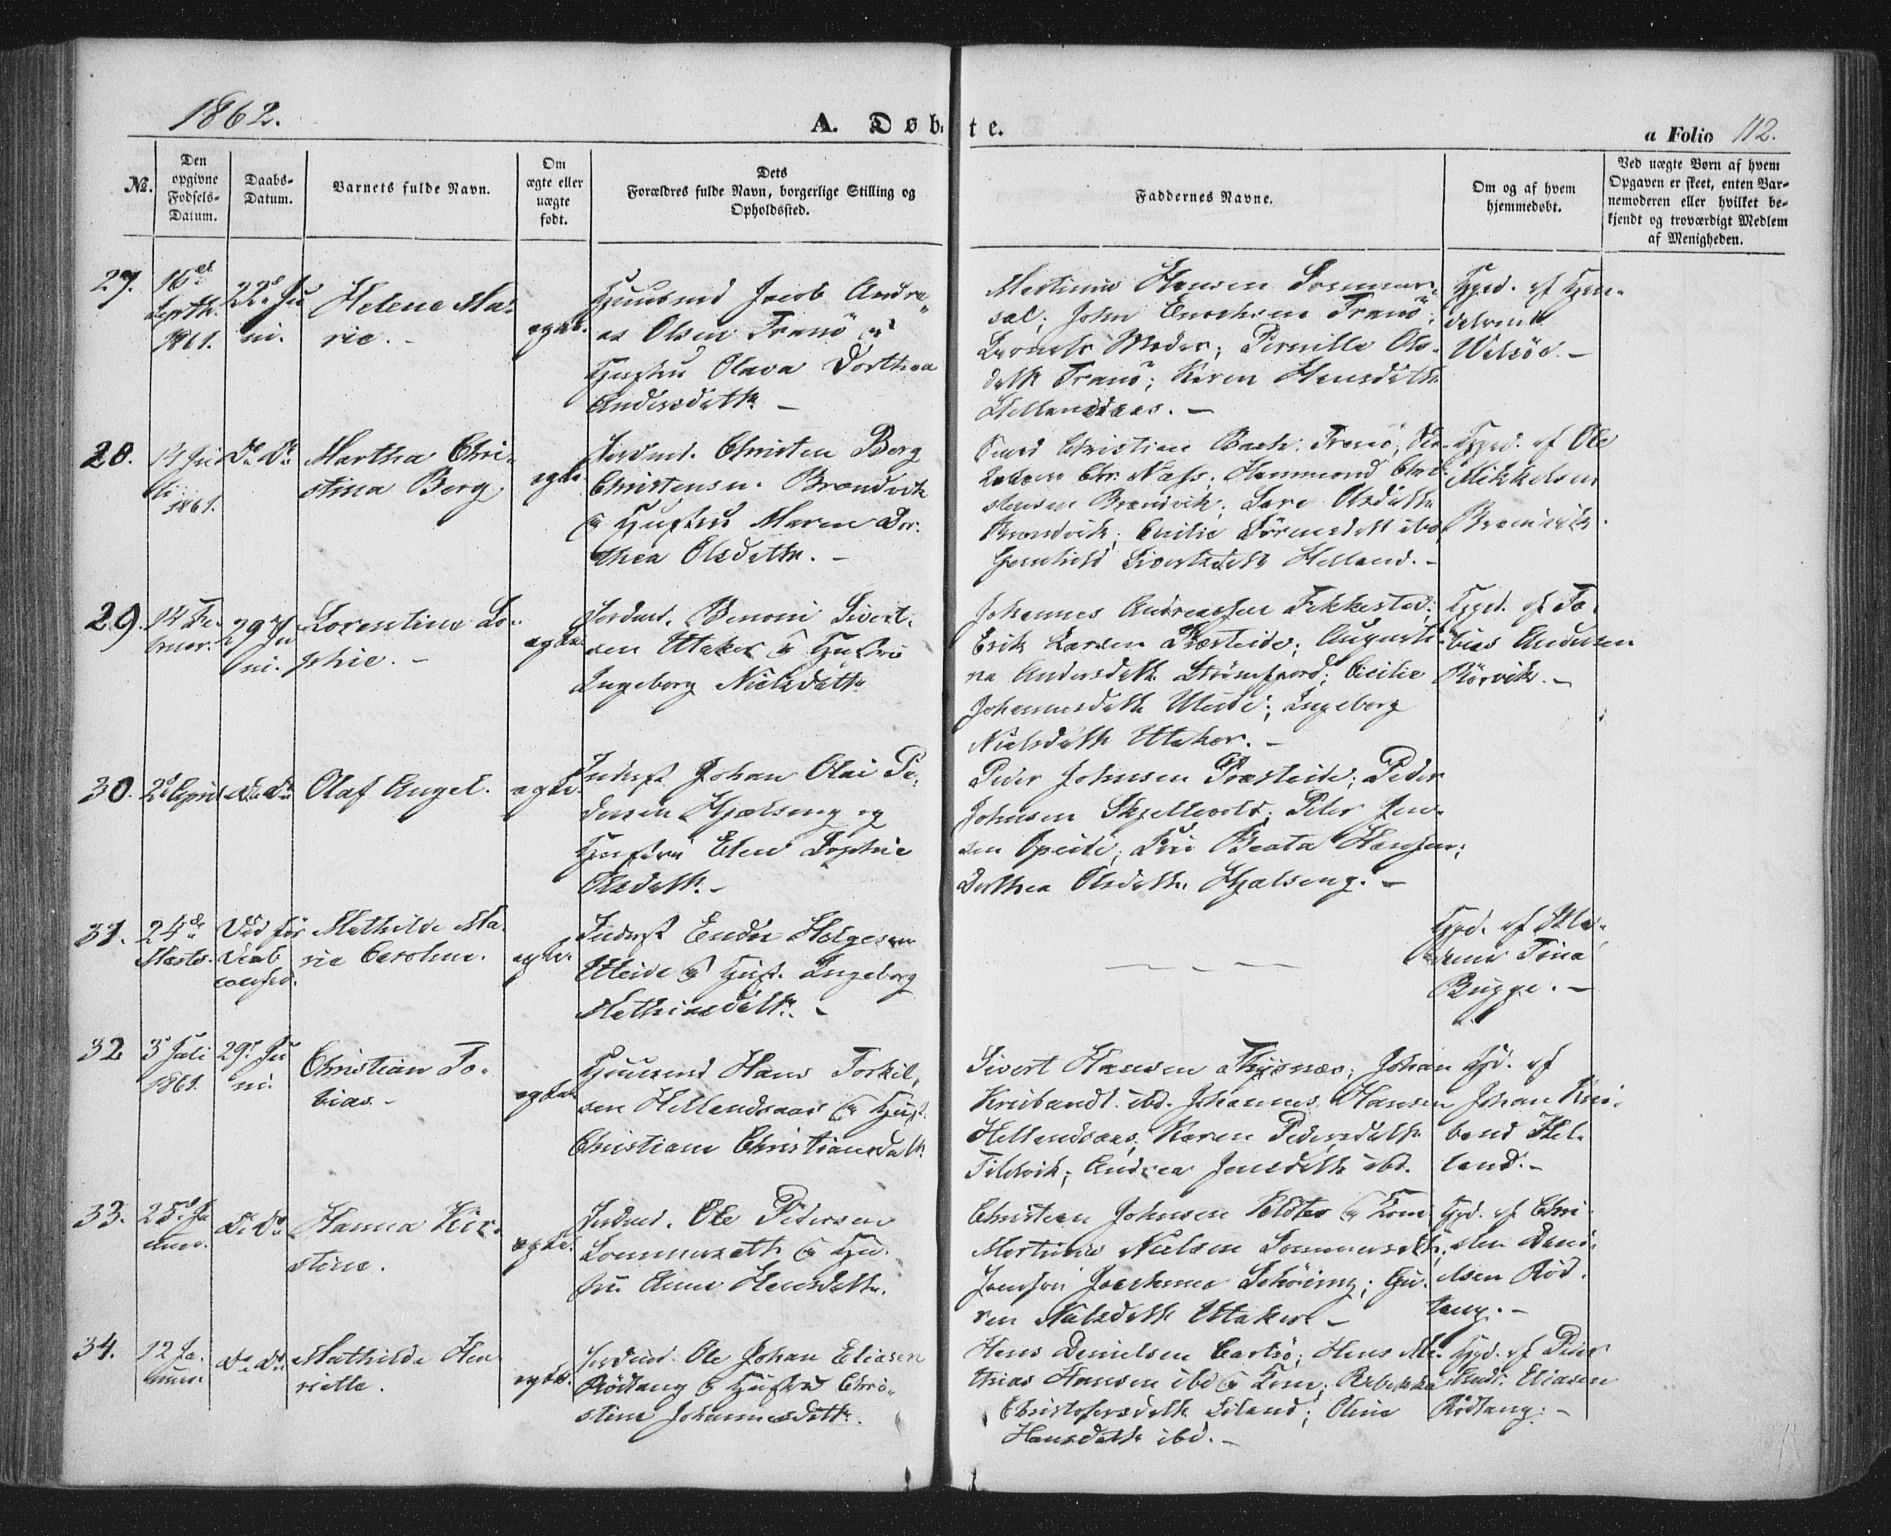 1862.
A. Døbte.
a Folio 112.
No.
Den opgivne Fødsels-Datum.
Daabs-Datum.
Barnets fulde Navn.
Om ægte eller uægte født.
Dets Forældres fulde Navn, borgerlige Stilling og Opholdssted.
Faddernes Navne.
Om og af hvem hjemmedøbt.
Ved uægte Børn af hvem Opgaven er skeet, enten Barnemoderen eller hvilket bekjendt og troværdigt Medlem af Menigheden.
27.
16de Septb. 1861.
22d Juni.
Helena Marie. -
ægte.
Huusmd Jacob Andreas Olsen Tranö
Hustru Olava Dorthea
Andersdatter. -
Martinus Hansen Sommersæt; John Enochsen Tranö;
Barnets Moder; Pernille Olsdatt Tranö; Karen Hansdatt
Hellandsaas. -
Hjd. af
28.
14 Juli 1861.
Do Do
Martha Christina Berg
ægte
Jordmd. Christen Berg
Christensen Brændvik
& Hustru Maren Dorthea Olsdattr. -
Christian Bach Tranö;
Næss; Hammond Christensen Brændvik; Sara Olsdattr
Brændvik; Cecilie Sörensdatt ibd
Gunhild Sivertsdatt Helland. -
Hjd. af Ole
Mikkelsen
Brændvik.
29.
14 Februar.
29 Juni.
Lorentine Sophie. -
ægte
Jordmd. Benoni Sivertsen Utaker & Hustru
Ingeborg Nielsdattr
Johannes Andreassen Fikkestad;
Erik Larsen Præsteide; Augustina Andersdatt Strömsfjord; Cecilie
Johannesdatt Uteide; Ingeborg
Nielsdatt Utaker. -
Hjd. af Tobias Andersen
Rörvik. -
30.
2d April
Do Do
Olaf Angel.
ægte.
Inderst Johan Olai Pedersen Hjælseng og
Hustru Elen Sophie
Olsdatt. -
Peder Johnsen Præsteide; Peder
Johnsen Skjellevold; Peter Jensen Opeide; Beata Hansen;
Dorthea Olsdatt. Hjalseng. -
31.
24de Marts.
Død för Daab
Mathilde Maria Caroline.
ægte.
Inderst Ender Helgesen
Uteide & Hust. Ingeborg
Mathiasdatt. -
Hjd. af
Tina
Bugge. -
32
3d Juli 1861.
29d Juni.
Christian Tobias. -
ægte
Huusmd Hans Torkilsen Hellandsaas & Hust.
Christiane Christiansdatt.
Sivert Hansen Thysnæs; Johan
Kniband ibd. Johannes Hansen
Hellandsaas; Karen Pedersdatt
Tilevik; Andrea Jensdatt ibd.
Hjd. af
Johan Kniband Helland. -
33.
25d Januar.
Do Do
Hanna Kirstine.
ægte.
Jordmd. Ole Pedersen
Sommersæth & Hustru Anna Hansdattr.
Christian Johnsen Kloter & Kone
Martinus Nielsen Sommersæth;
Jomfru Joachima Schöning;
Nielsdatt Utaker. -
Hjd. af Christen Danielsen Rödtang. -
34.
12 Januar.
Do Do.
Mathilda Henriette.
ægte.
Jordmd. Ole Johan Eliasen
Rödtang & Hustru Christine Johannesdattr.
Hans Danielsen Carlsö; Hans Mathias Hansen ibd & Kone; Rebekka
Christofersdatt Leiland; Oline
Hansdatt ibd. -
Hjd. af Peder
Andr. Eliasen
Rödtang. -